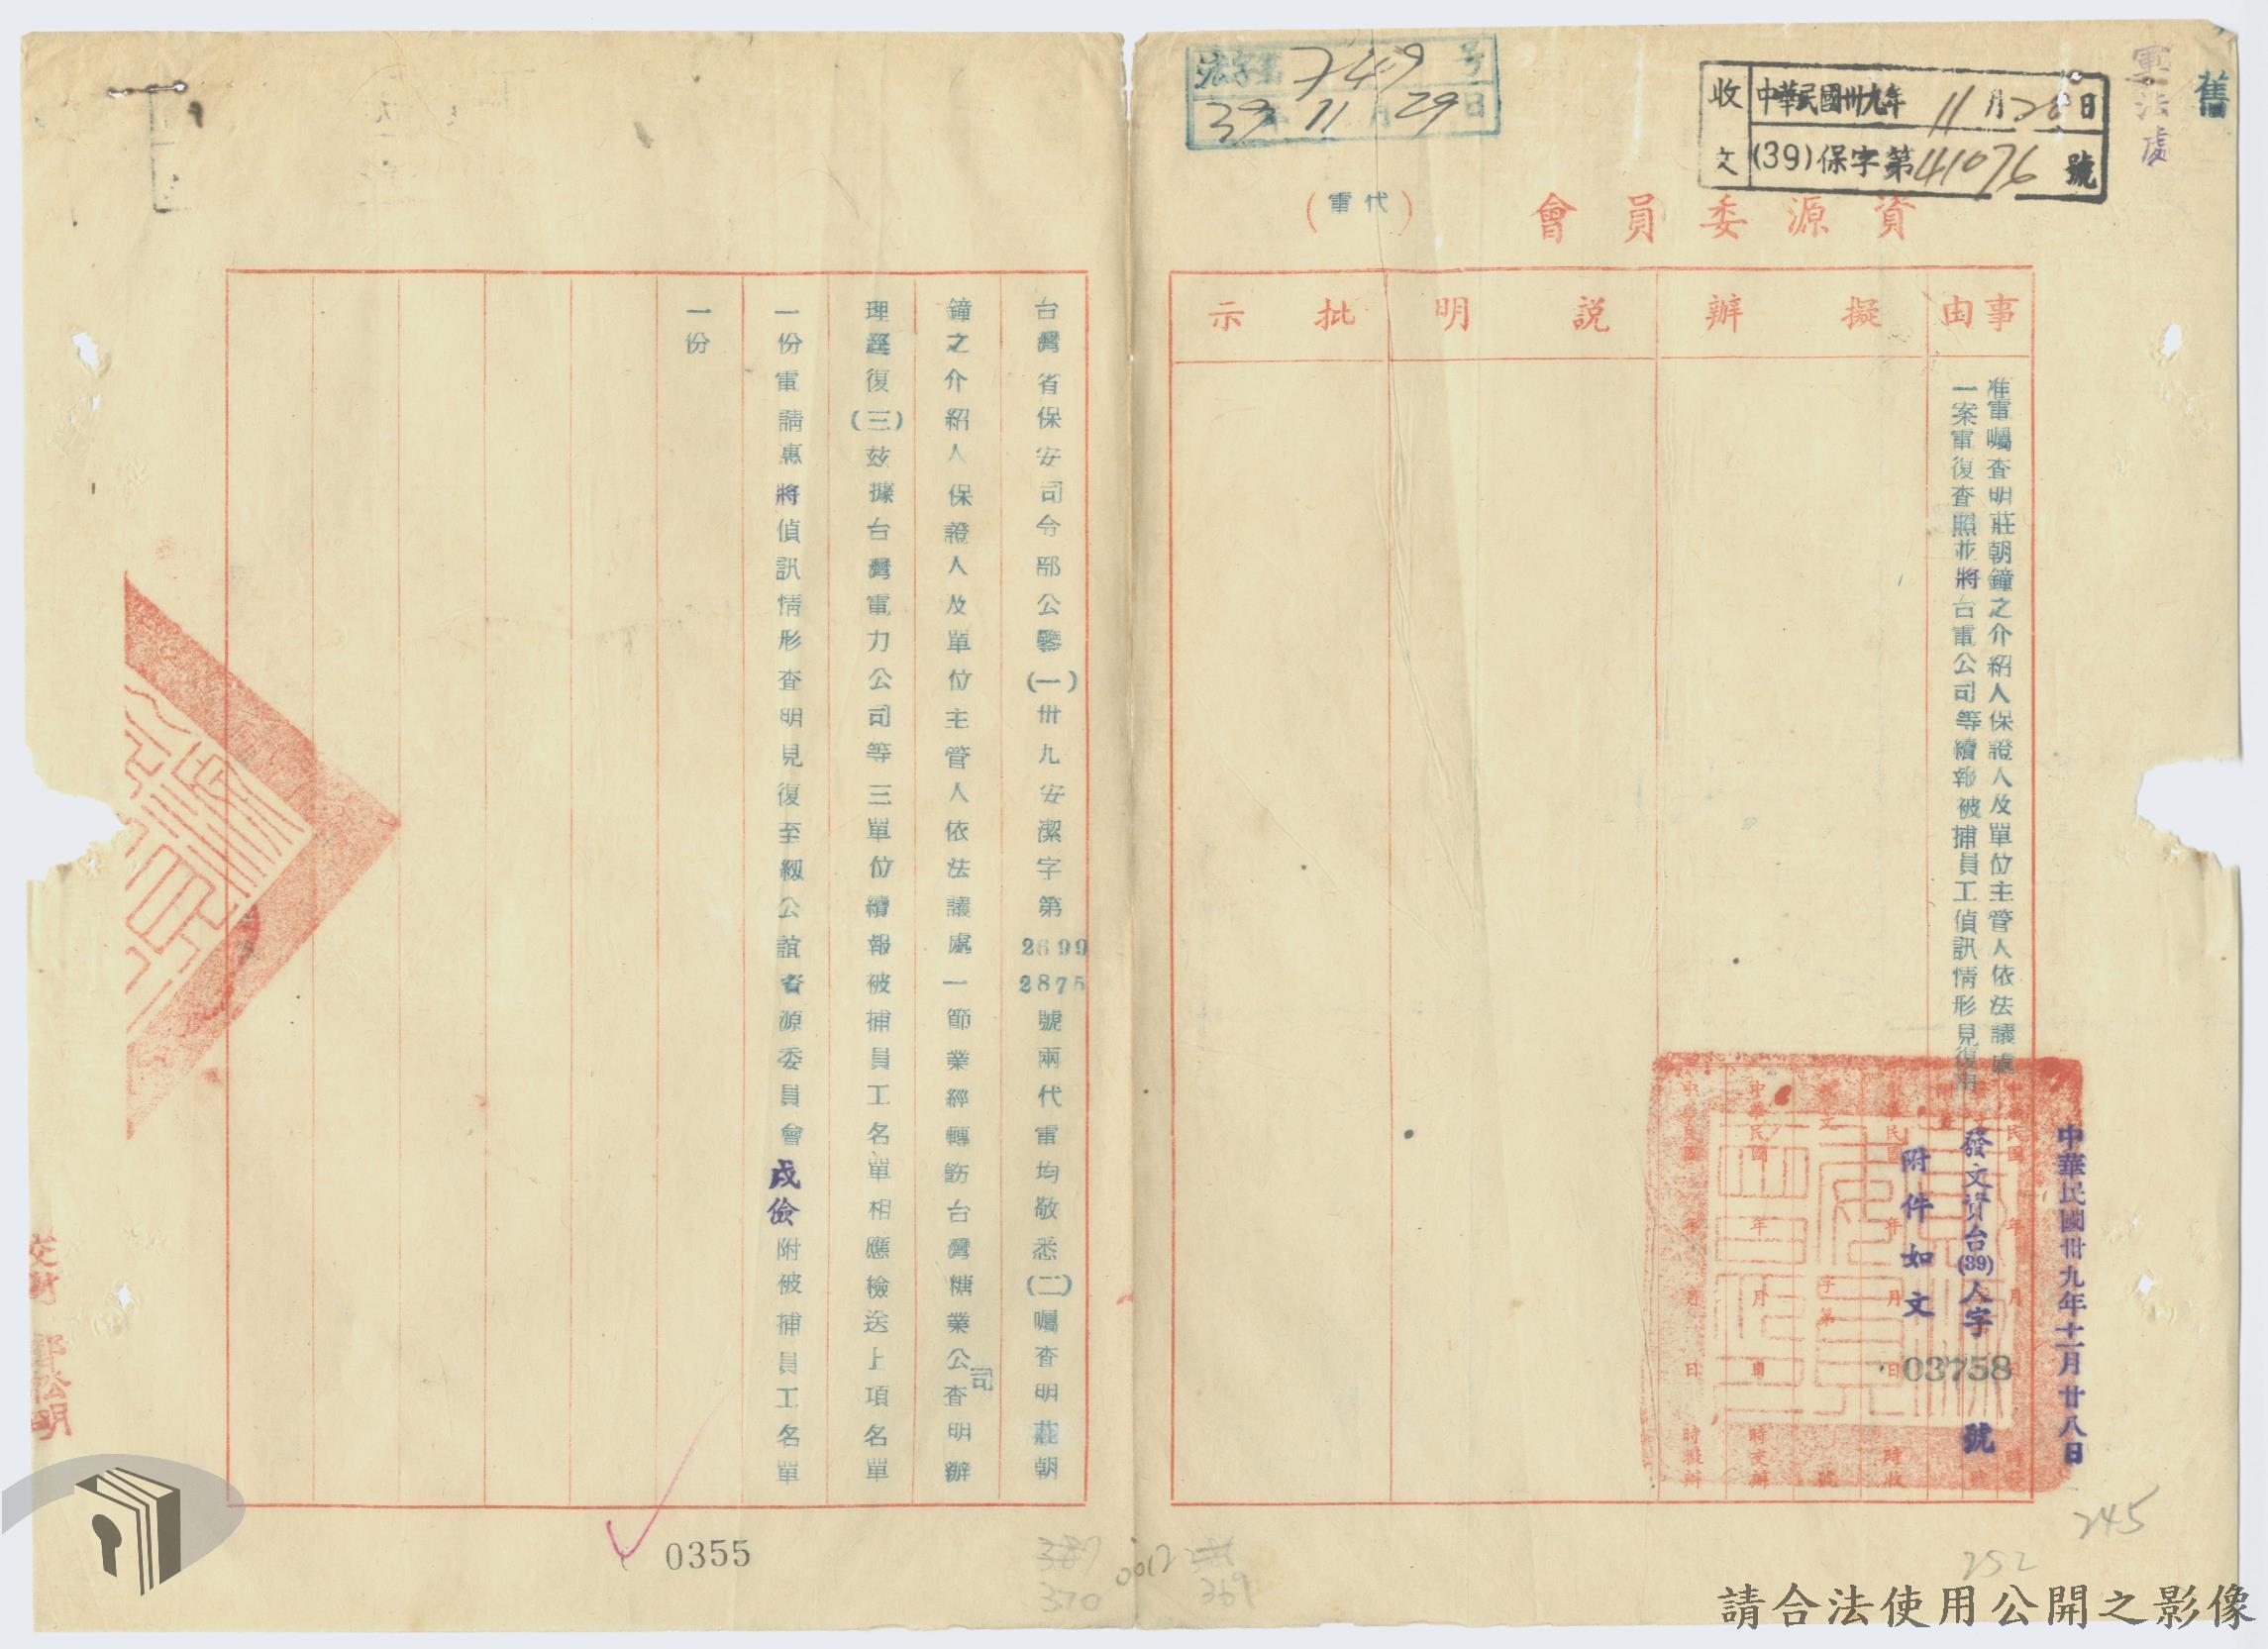 舊
軍法處
收文
中華民國卅九年11月28日
(39)保字第41076號
法字第749号
39年11月29日
資源委員會
(代電)
事由
擬辦
說明
批示
准電囑查明莊朝鐘之介紹人保證人及單位主管人依法議處
一案電復查照並將台電公司等續報被捕員工偵訊情形見復由
中華民國卅九年十一月廿八日
發文資台(39)人字03758號
附件如文
台灣省保安司令部公鑒(一)卅九安潔字第2699 2875號兩代電均敬悉(二)囑查明莊朝
鐘之介紹人保證人及單位主管人依法議處一節業經轉飭台灣糖業公司查明辦
理逕復(三)茲據台灣電力公司等三單位續報被捕員工名單相應檢送上項名單
一份電請惠將偵訊情形查明見復至紉公誼資源委員會戌儉附被捕員工名單
一份
0355
370
0017
369
252
245
請合法使用公開之影像